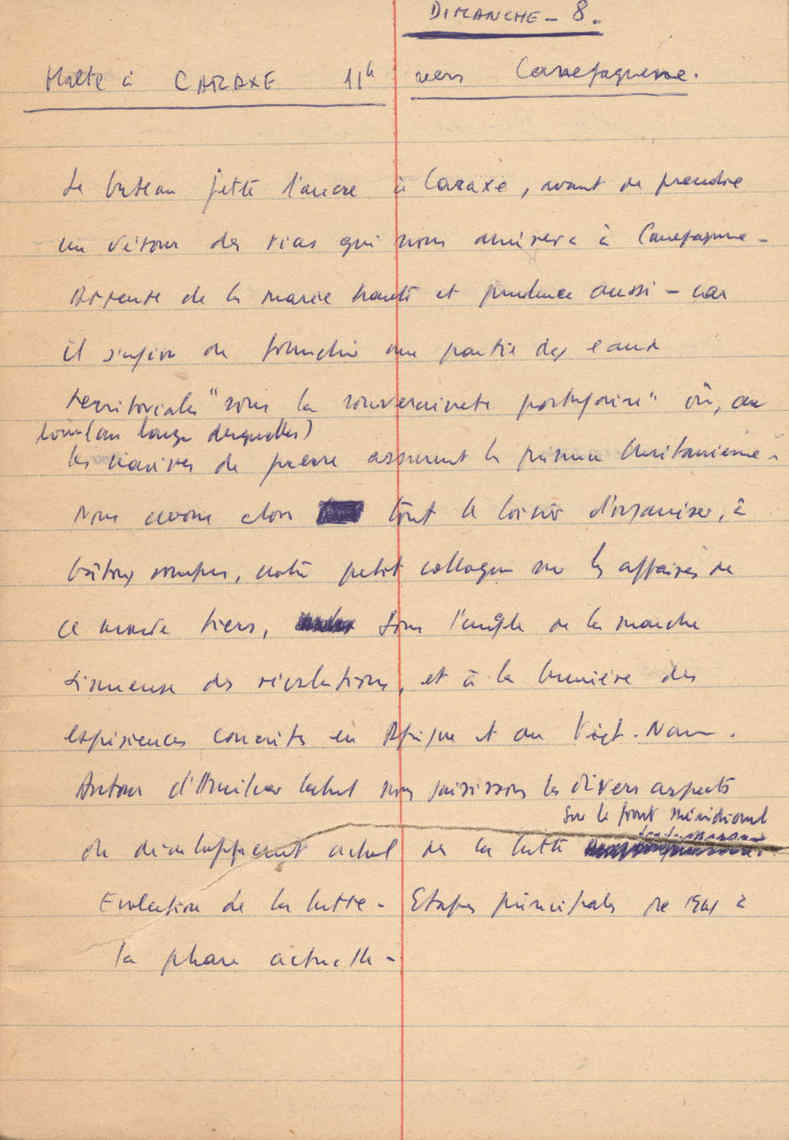 DIMANCHE - 8.
Halte à CARAXE 11h vers Canefaquenne.
Le bateau jette l'ancre à Caraxe, avant de prendre
un détour des rias qui nous amènera à
Attente de la marée haute et prudence aussi - car
il s'agira de franchir une partie des eaux
territoriales "sous la souveraineté portugaise" où, au
(au large desquelles)
les navires de guerre assurent la présence lusitanienne.
Nous avons alors tout le loisir d'organiser, à
bâtons rompus, notre petit colloque sur les affaires de
ce monde tiers, sous l'angle de la marche
sinueuse des révolutions, et à la lumière des
expériences concrètes en Afrique et au Viet-Nam.
Autour d'Amilcar Cabral nous saisissons les divers aspects
sur le front méridional
du développement actuel de la lutte
Evolution de la lutte - Etapes principales de 1961 à
la phase actuelle -